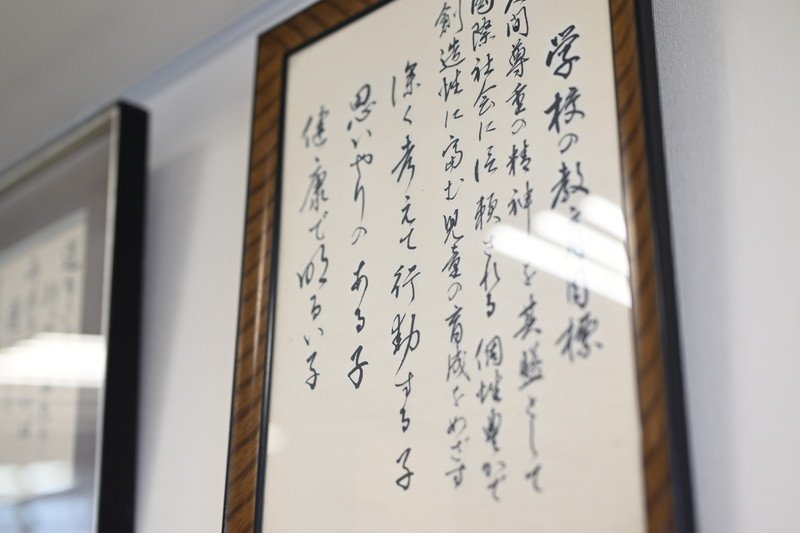 学校の教育目標
人間尊重の精神を基盤として
国際社会に信頼される 個性豊かで
創造性に富む児童の育成をめざす
深く考えて行動する子
思いやりのある子
健康で明るい子